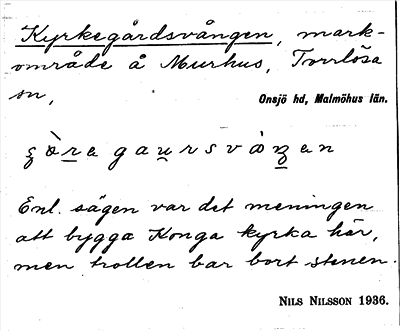 Kyrkegårdsvången, mark-
område å Murhus, Torrlösa
sn,
Onsjö hd, Malmöhus län.
Enl. sägen var det meningen
att bygga Konga kyrka här,
men trollen bar bort stenen.
NILS NILSSON 1936.